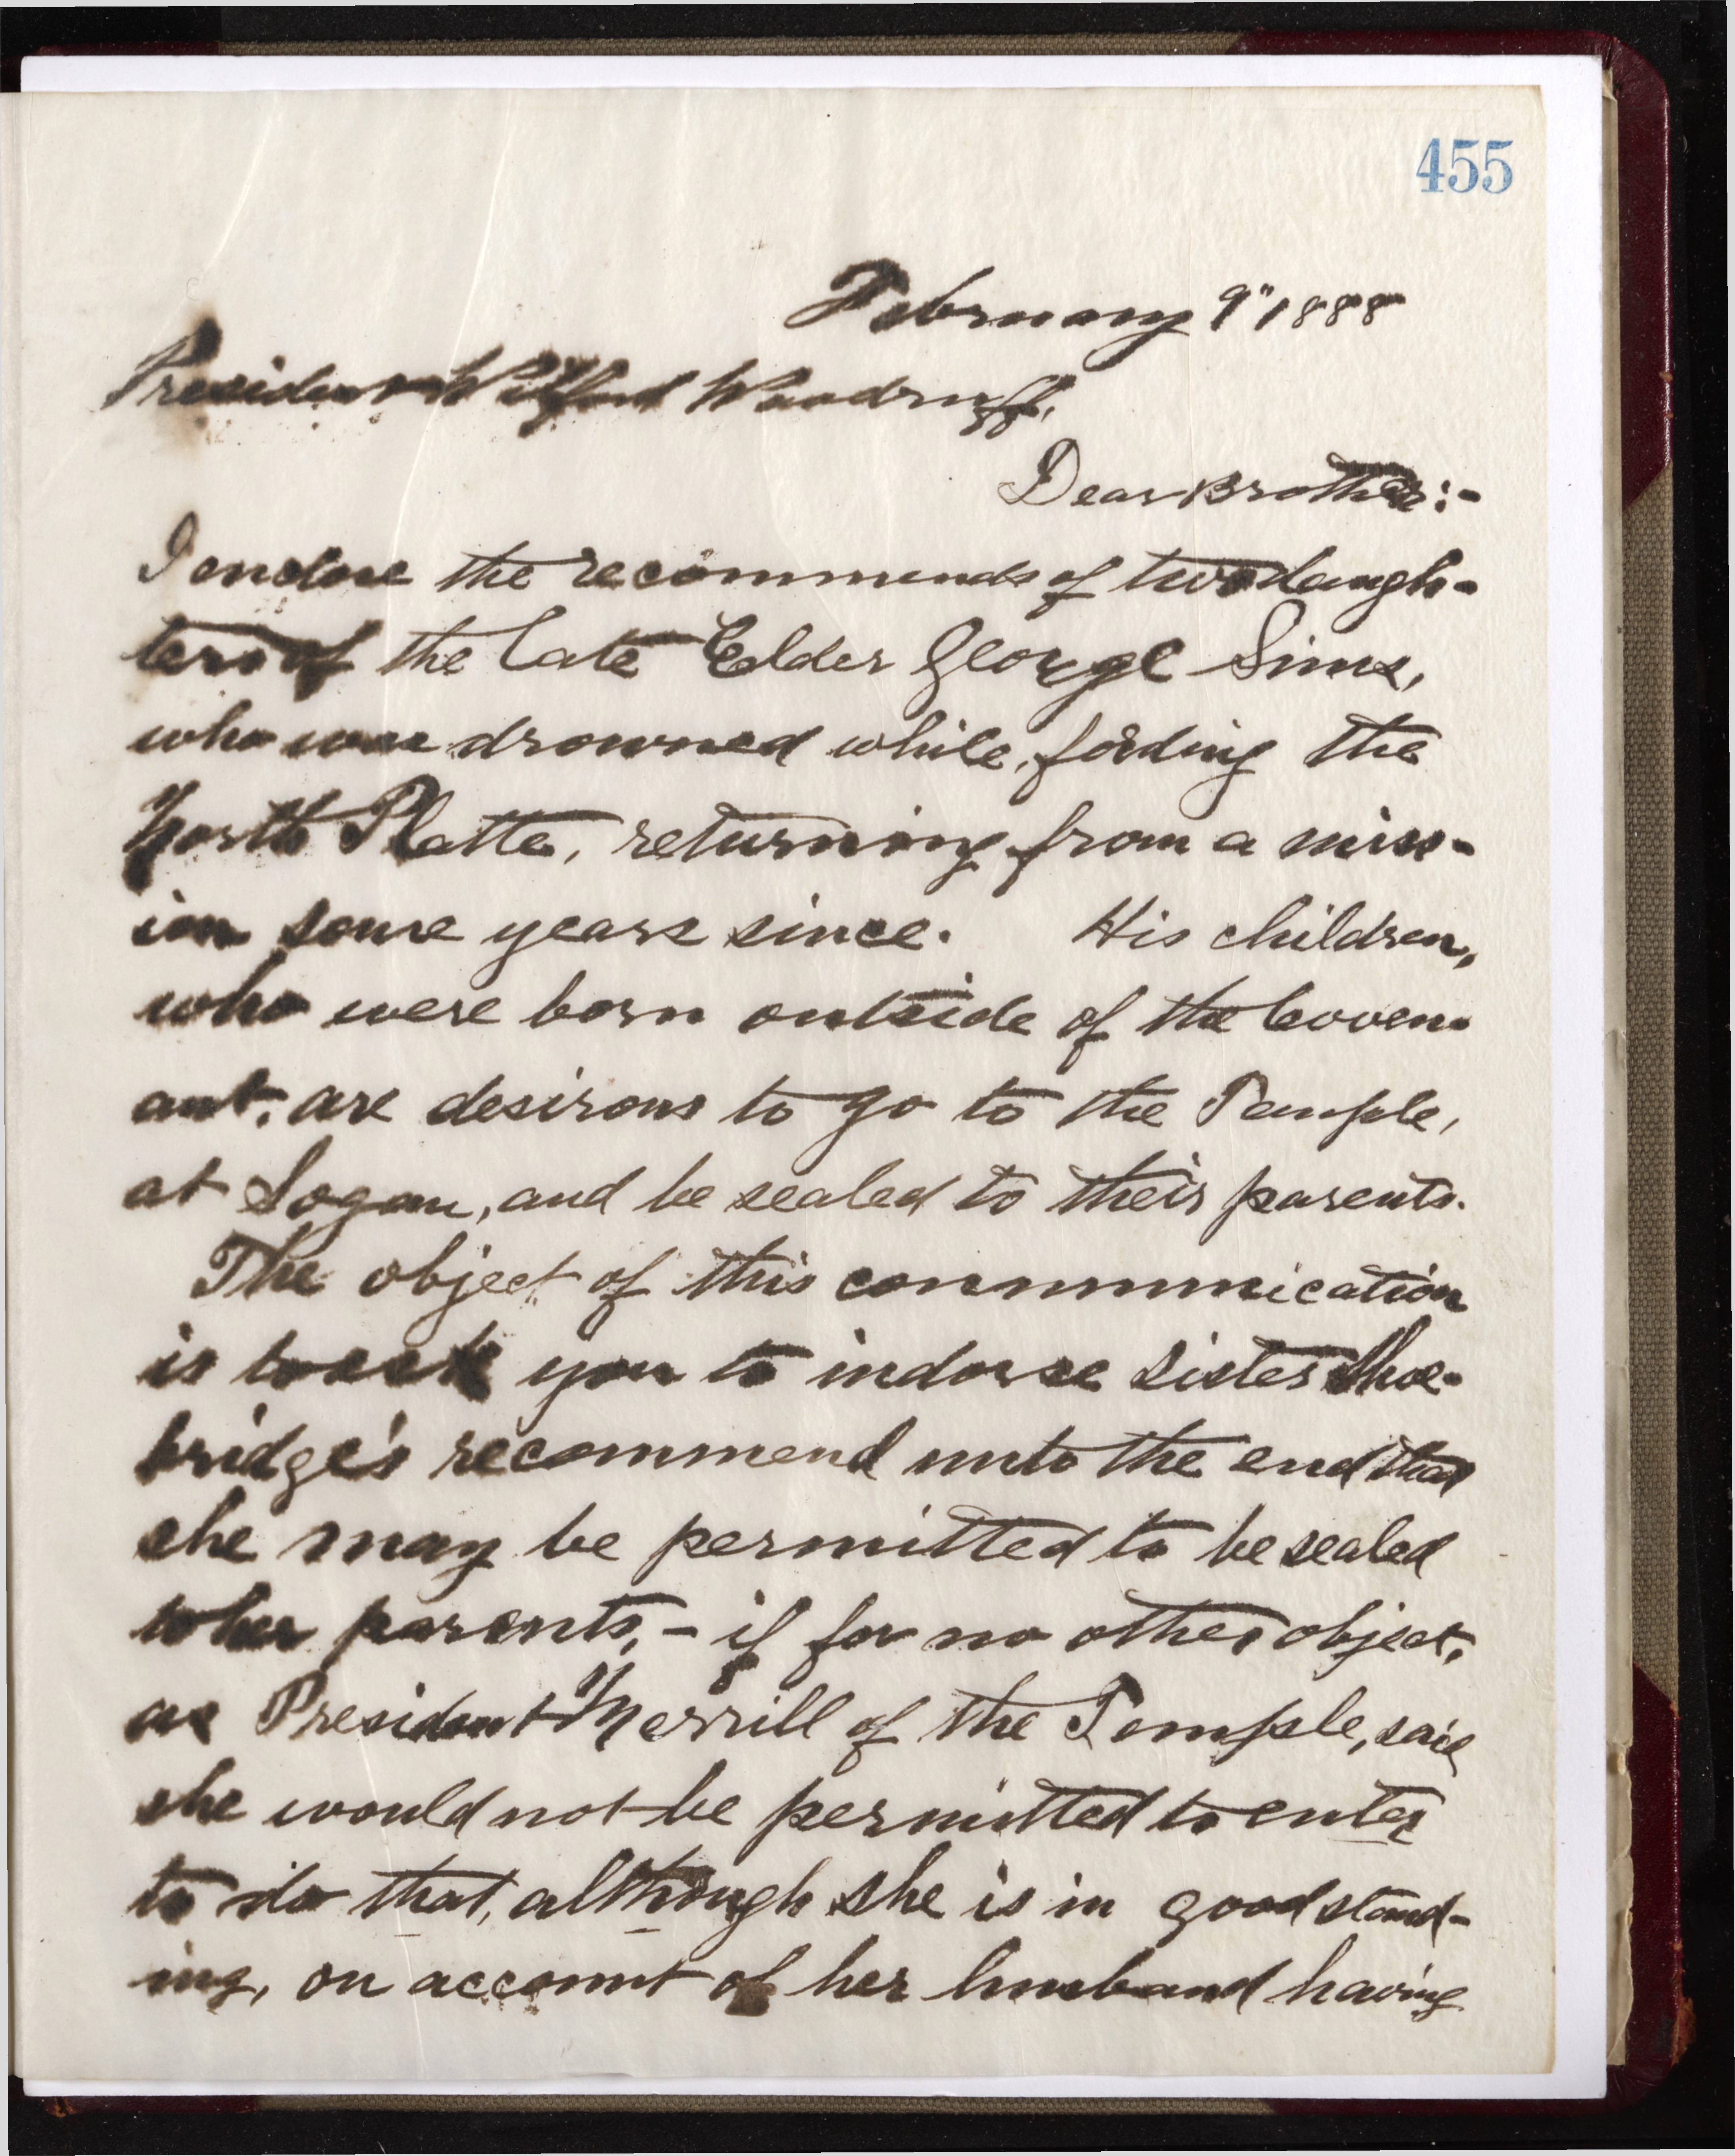 455
February 9" 1888
President Wilford Woodruff,
Dear Brother:-
I enclose the recommends of two daugh-
ters of the late Elder George Sims,
who was drowned while fording the
North Platte, returning from a miss-
ion some years since. His children,
who were born outside of the Coven-
ant, are desirous to go to the Temple,
at Logan, and be sealed to their parents.
The object of this communication
is to ask you to indorse Sister Shoe-
bridge's recommend unto the end that
she may be permitted to be sealed
to her parents,- if for no other object,
as President Merrill of the Temple, said
she would not be permitted to enter
to do that, although she is in good stand-
ing, on account of her husband having